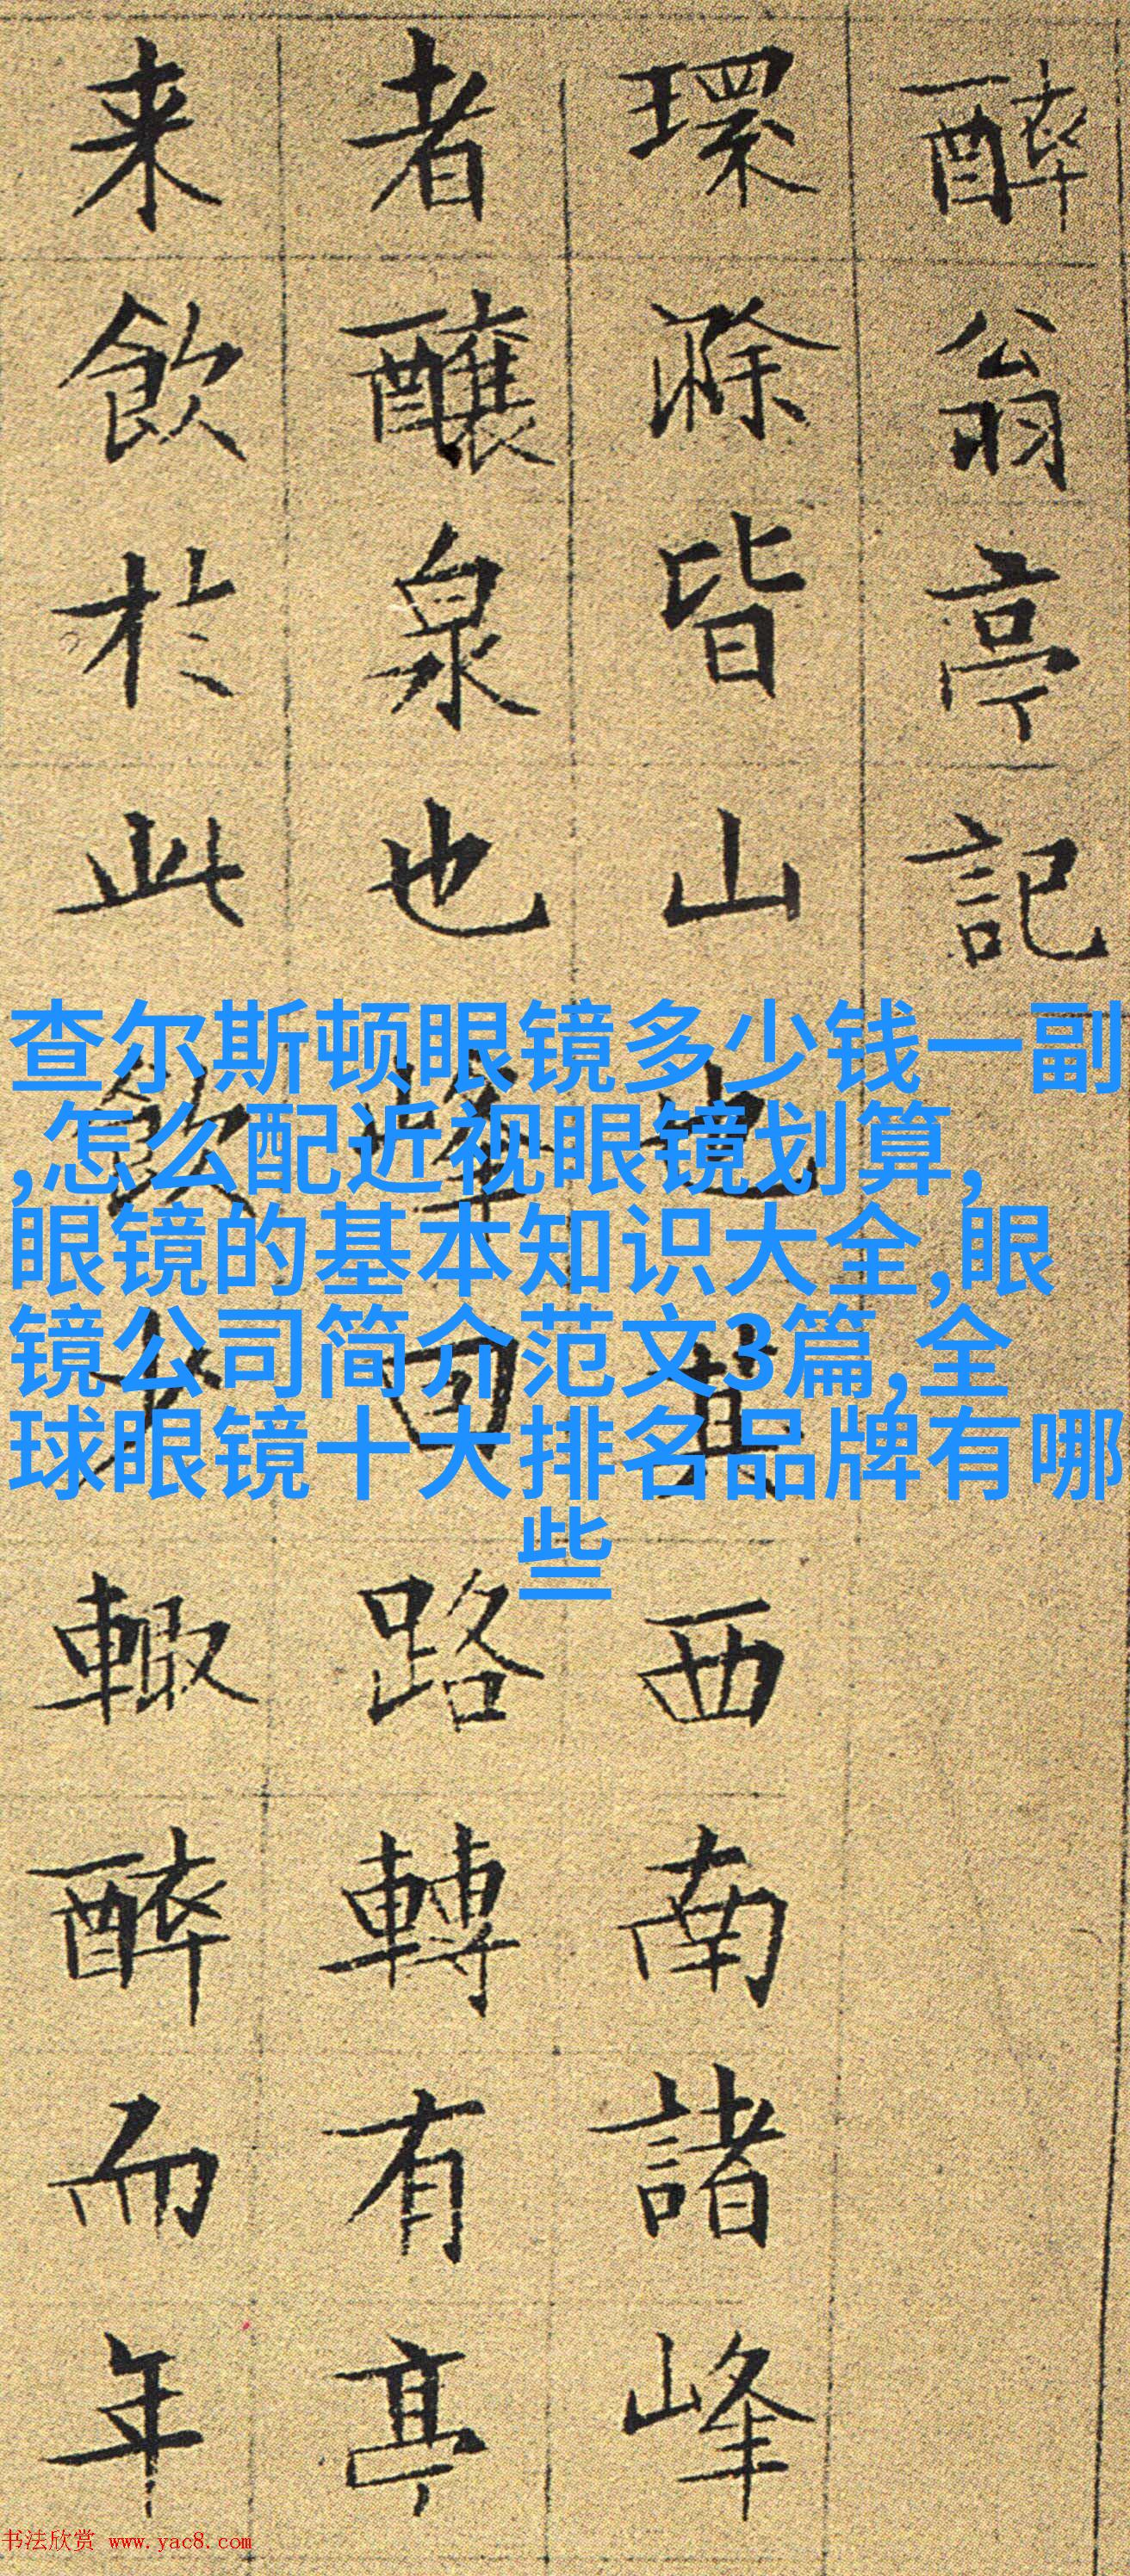 醉翁亭記
環滁皆山也其西南諸峰
者釀泉也峯回路轉有亭
来飲於此飲少輒醉而年
查尔斯顿眼镜多少钱一副
,怎么配近视眼镜划算,
眼镜的基本知识大全,眼
镜公司简介范文3篇,全
球眼镜十大排名品牌有哪
些
书法欣赏 www.yac8.com